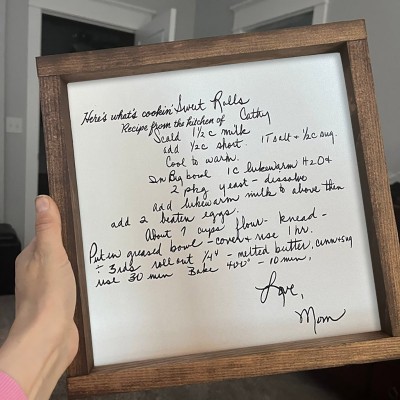 Here's what's cookin' Sweet Rolls
Recipe from the kitchen of Cathy
Scald 1 1/2 c milk
add 1/2 c short. 1T salt + 1/2 c sug.
Cool to warm.
In Big bowl 1 C lukewarm H2O +
2 pkg yeast - dissolve
add lukewarm milk to above then
add 2 beaten eggs.
About 7 cups flour - knead -
Put in greased bowl - cover + rise 1 hr.
÷ 3rds roll out 1/4" - melted butter, cinn + sug
rise 30 min Bake 400° - 10 min.
Love,
Mom